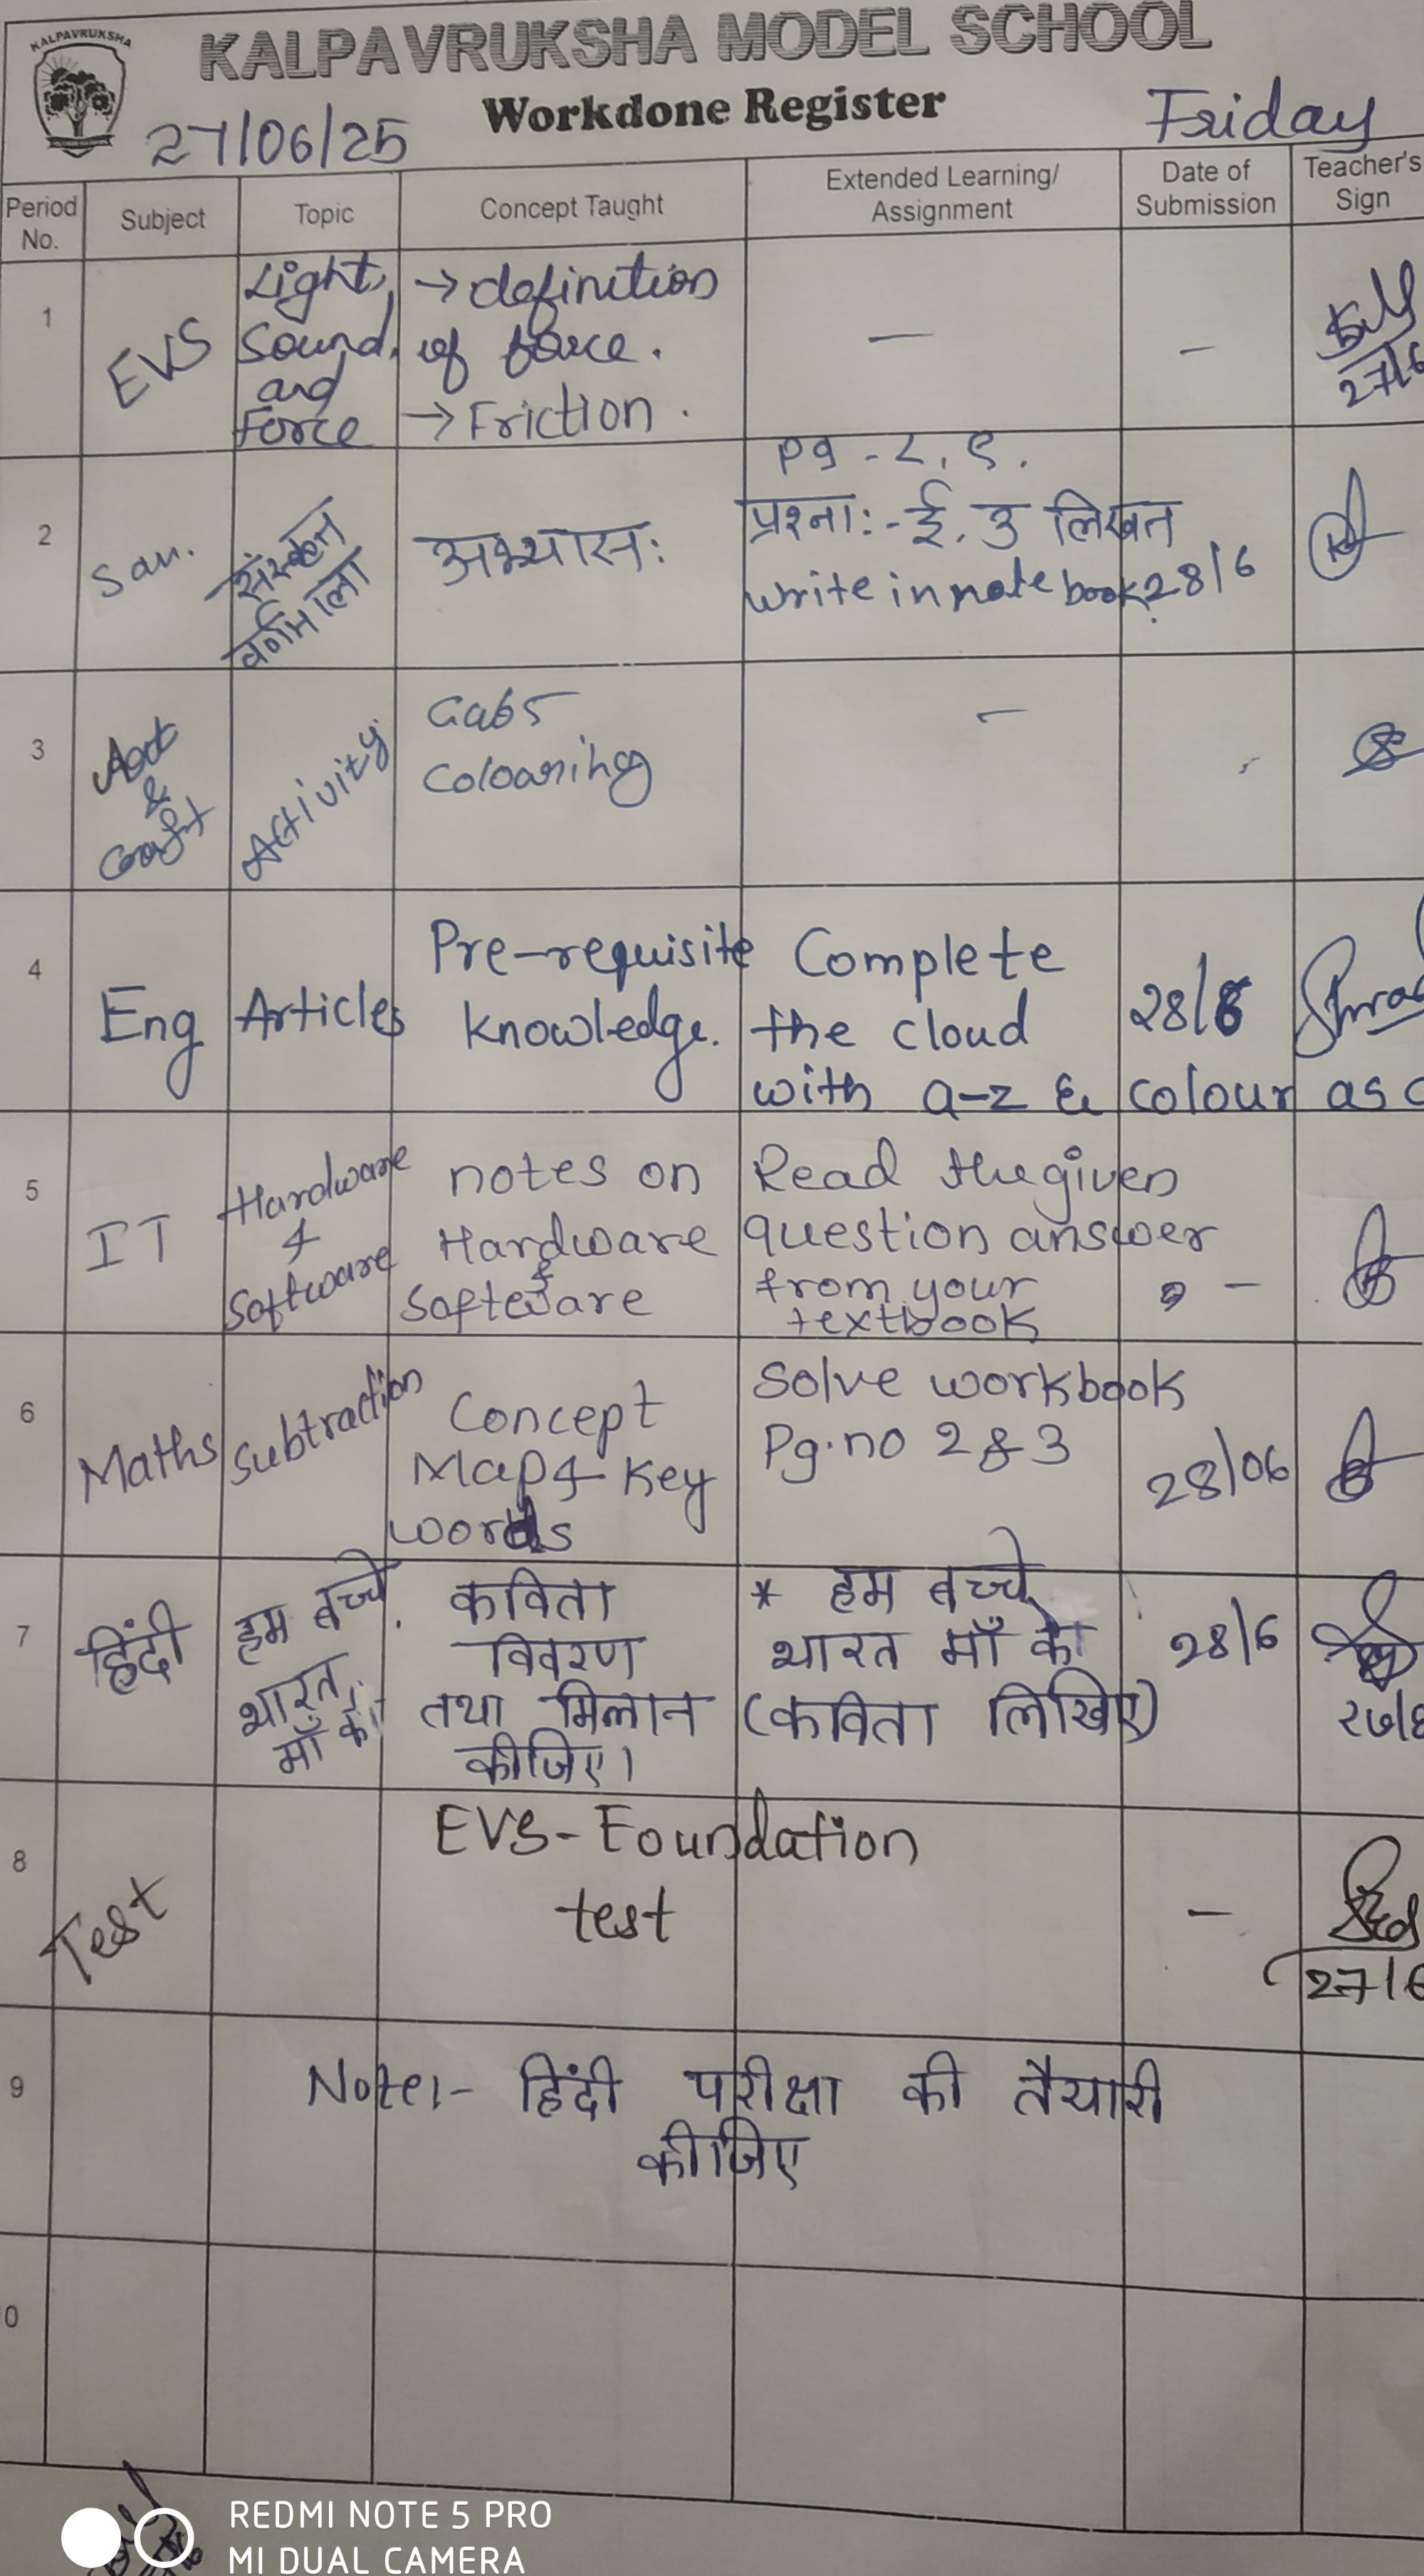 KALPAVRUKSHA
KALPAVRUKSHA MODEL SCHOOL
Workdone Register
27/06/25
Friday
Period No.
Subject
Topic
Concept Taught
Extended Learning/
Assignment
Date of
Submission
Teacher's
Sign
1
EVS
Light,
Sound,
and
Force
→ definition
of force.
→ Friction.
—
–
27/6
2
San.
संस्कृत
वर्णमाला
अभ्यास:
Pg - ८, ९.
प्रश्ना:- ई, उ लिखत
write in note book
28/6
3
Art
&
Craft
Activity
Colouring
–
4
Eng
Articles
Pre-requisite
knowledge.
Complete
the cloud
with a-z & colour as
28/6
5
IT
Hardware
&
Software
notes on
Hardware
&
Software
Read the given
question answer
from your
textbook
–
6
Maths
Subtraction
Concept
Map & Key
words
Solve workbook
Pg.no 2 & 3
28/06
7
हिंदी
हम बच्चे
भारत
माँ के
कविता
विवरण
तथा मिलान
कीजिए।
* हम बच्चे
भारत माँ के
(कविता लिखिए)
28/6
8
Test
EVS - Foundation
test
–
27/6
9
Note:- हिंदी परीक्षा की तैयारी
कीजिए
0
REDMI NOTE 5 PRO
MI DUAL CAMERA